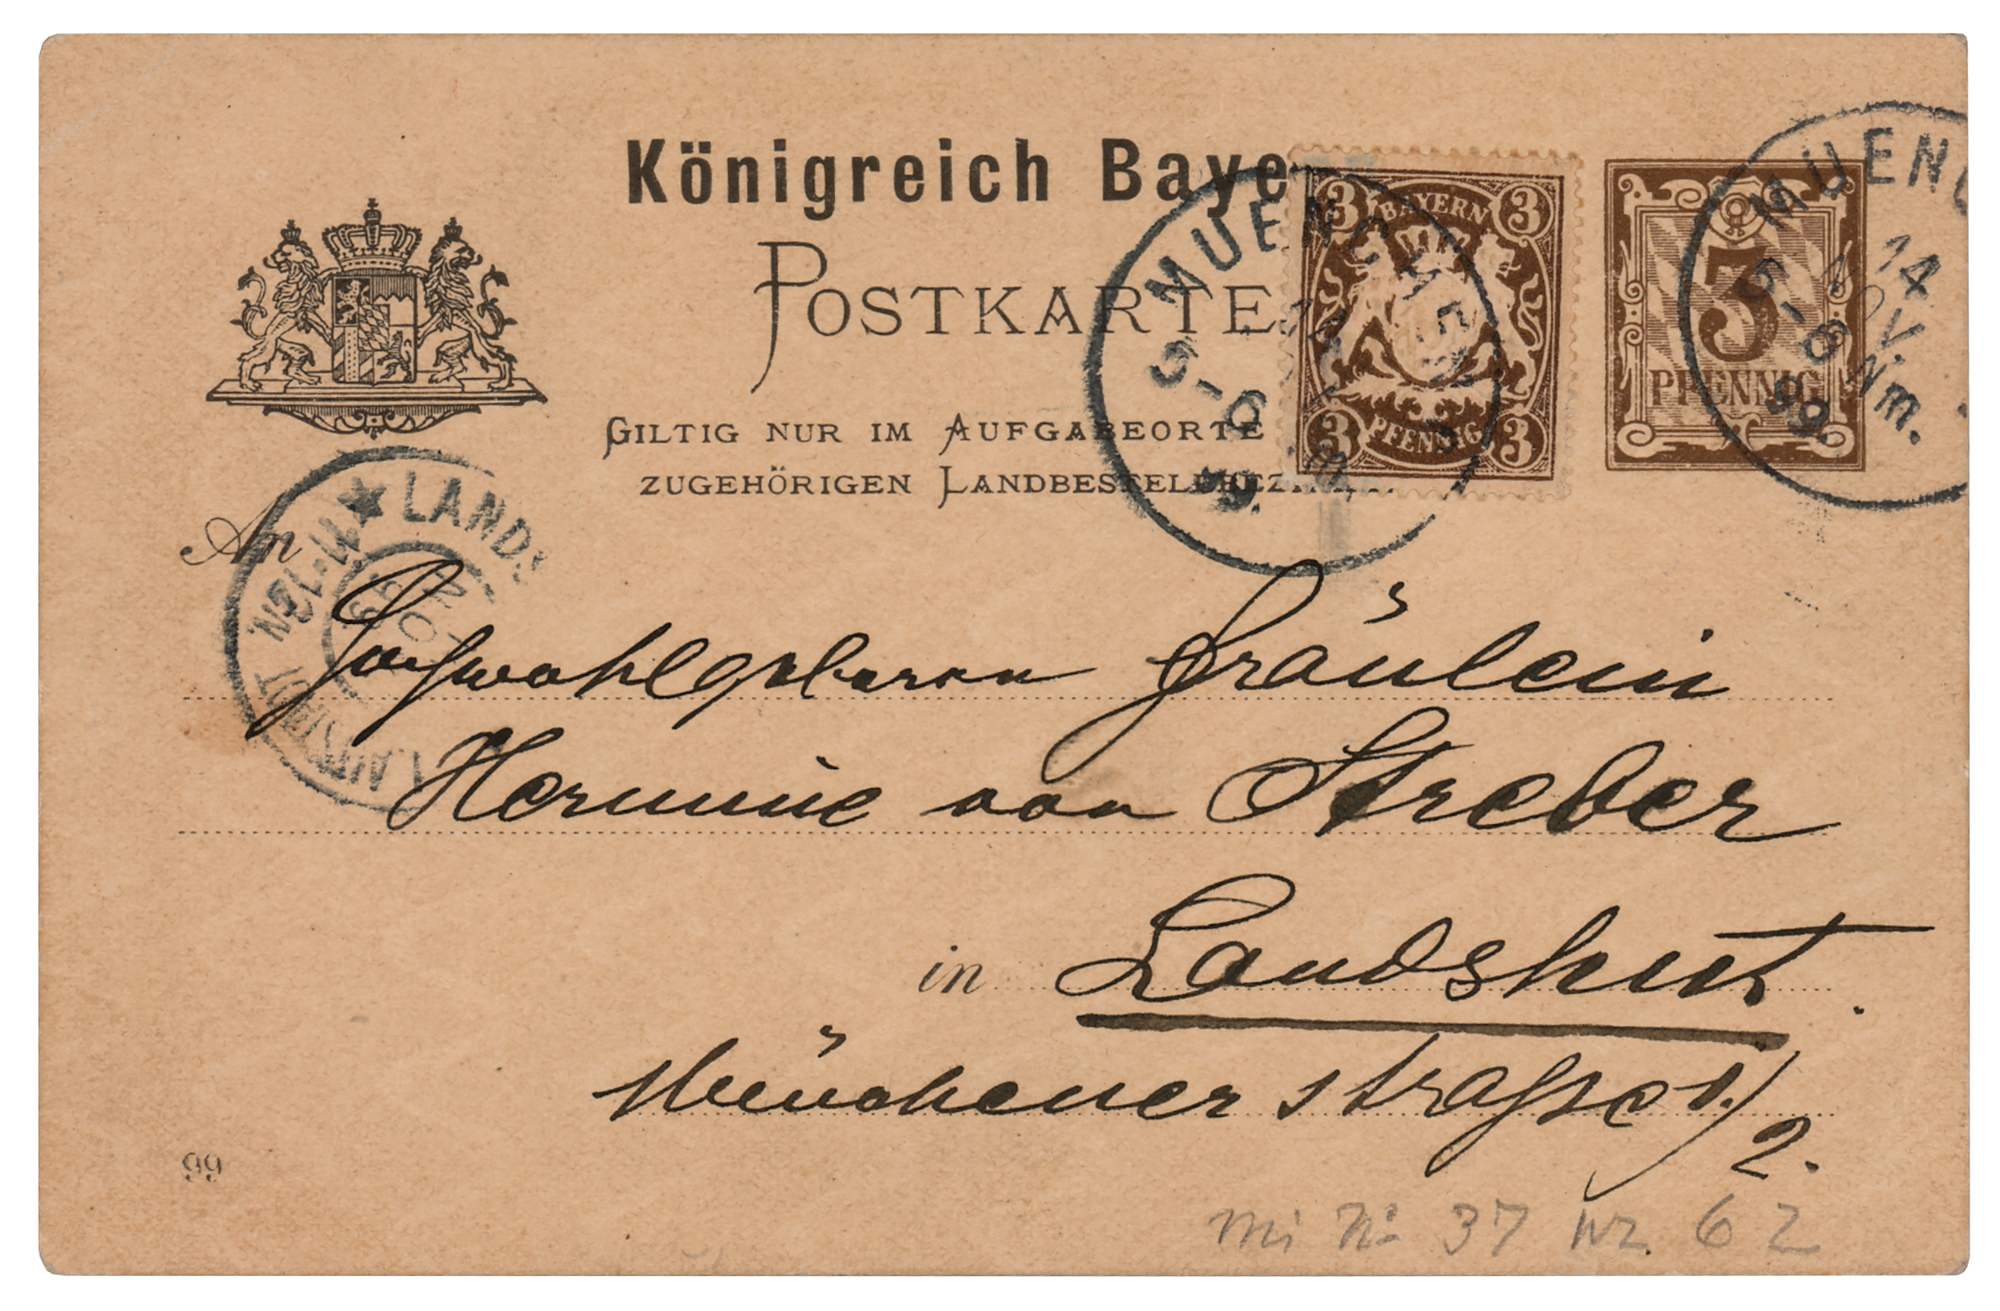 Königreich Baye
POSTKARTE
GILTIG NUR IM AUFGABEORTE
ZUGEHÖRIGEN LANDBESTELLBEZ
3 BAYERN 3
3 PFENNIG 3
3
PFENNIG
MUENCHEN
5-6
99.
MUENC
14
NOV.
5-6 Nm.
99
LANDS
11-12N
An
Hochwohlgeboren Fräulein
Hermine von Streber
in Landshut.
Münchenerstrasse 1/2.
99
Mi Nr 37 Wz 62